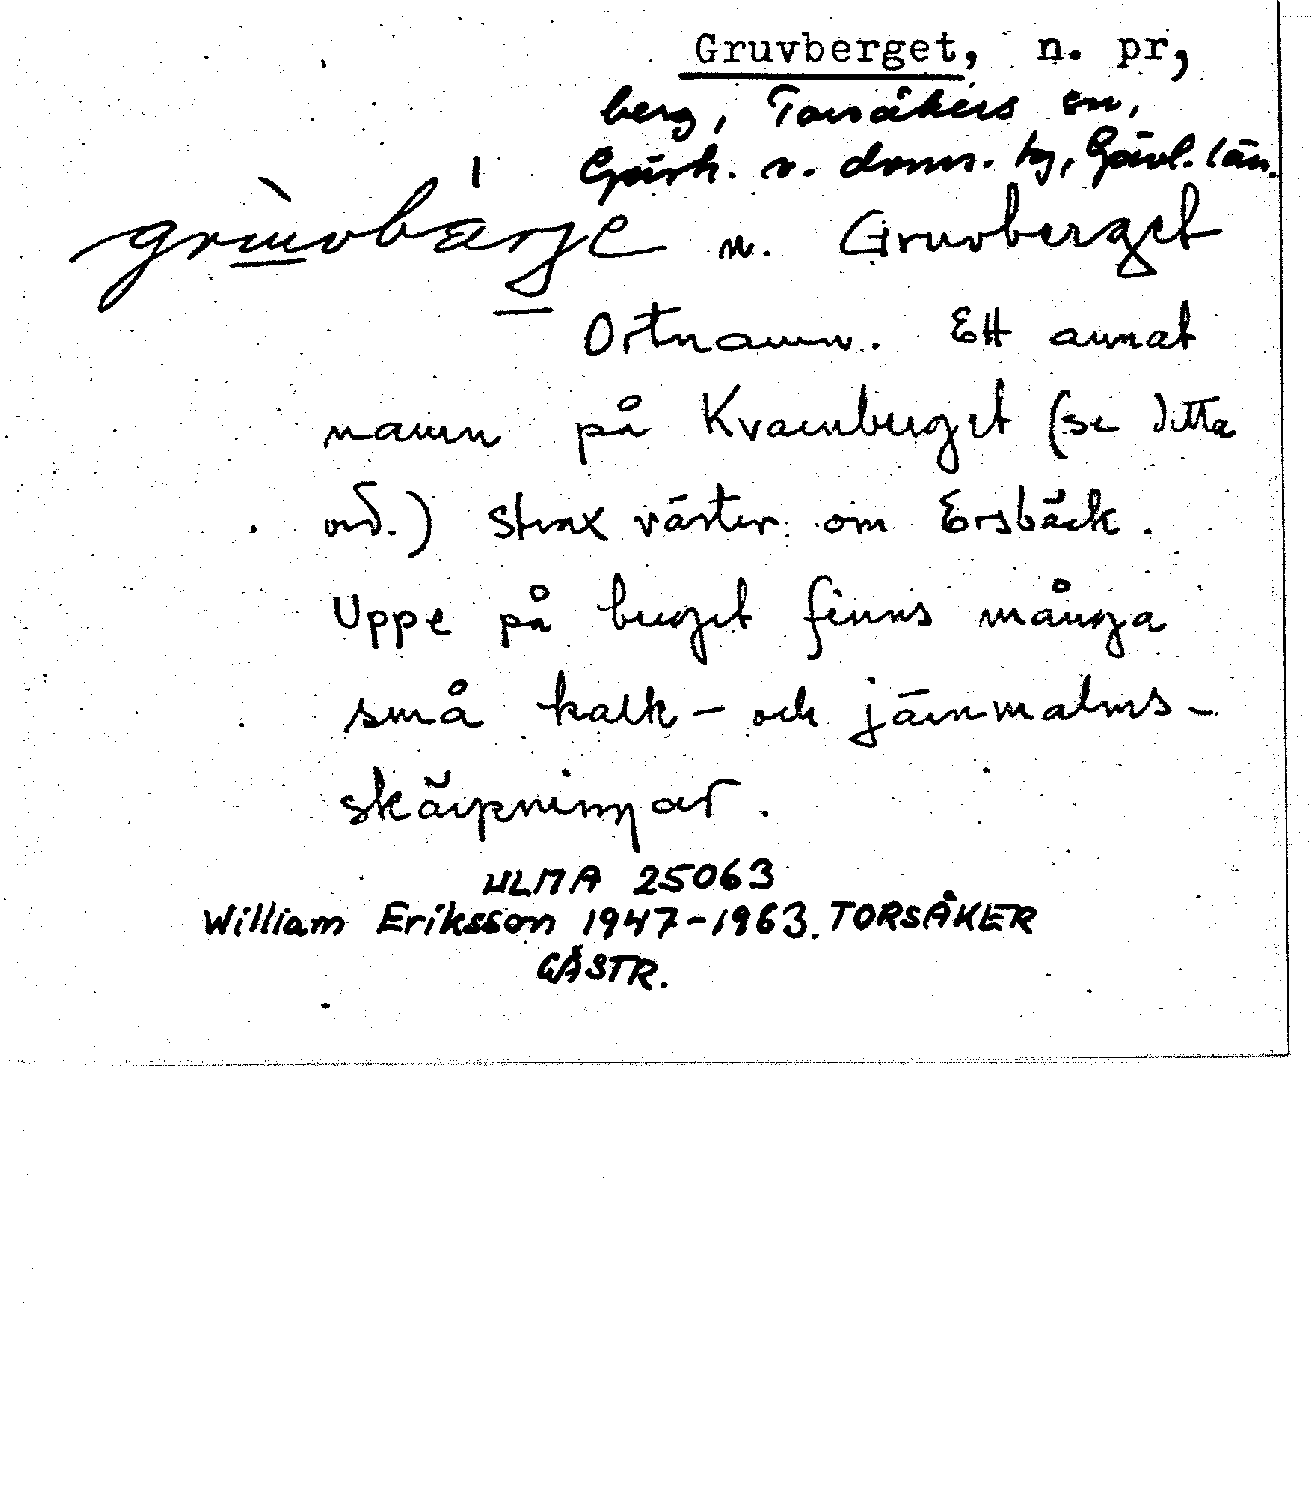 Gruvberget, n. pr,
berg, Torsåkers sn,
Gästr. v. doms. hg, Gävl. län.
n. Gruvberget
Ortnamn. Ett annat
namn på Kvarnberget (se detta
ord.) strax väster om Ersbäck.
Uppe på berget finns många
små kalk- och järnmalms-
skärpningar.
ULMA 25063
William Eriksson 1947-1963. TORSÅKER
GÄSTR.